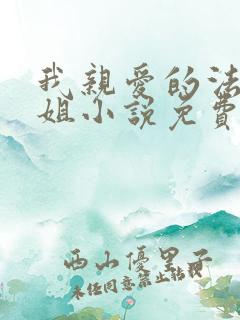 我親愛的法
姐小說免費
西山優里子
未任同意禁止転載